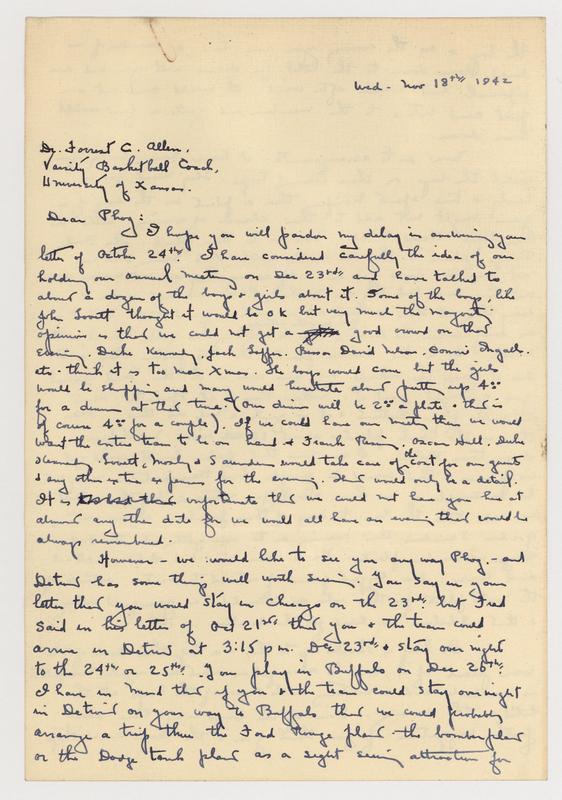 Wed - Nov 18th, 1942
Dr. Forrest C. Allen,
Varsity Basketball Coach,
University of Kansas.
Dear Phog:
I hope you will pardon my delay in answering your
letter of October 24th. I have considered carefully the idea of our
holding our annual meeting on Dec 23rd, and have talked to
about a dozen of the boys & girls about it. Some of the boys, like
John Lovett thought it would be O K but very much the majority
opinion is that we could not get a good crowd on that
evening. Duke Kennedy, Jack David Nelson, Ingalls,
etc. think it is too near Xmas. The boys would come but the girls
would be shopping and many would hesitate about putting up 4.00
for a dinner at that time. (Our dinner will be 2.00 a plate & that is
of course 4.00 for a couple). If we could have our meeting then we would
want the entire team to be on hand & Frank Oscar Hull, Duke
Kennedy, Lovett, Mosby & Saunders would take care of the cost for our guests
& any other extra expenses for the evening. That would only be a detail.
It is unfortunate that we could not have you here at
almost any other date for we would all have an evening that would be
always remembered.
However - we would like to see you any way Phog - and
Detroit has some things well worth seeing. You say in your
letter that you would stay in Chicago on the 23rd, but Fred
said in his letter of Oct 21st that you & the team could
arrive in Detroit at 3:15 p.m. Dec 23rd & stay over night
to the 24th or 25th. You play in Buffalo on Dec 26th.
I have in mind that if you & the team could stay overnight
in Detroit on your way to Buffalo that we could probably
arrange a trip thru the Ford Rouge plant - the bomber plant
or the Dodge tank plant as a sight seeing attraction for